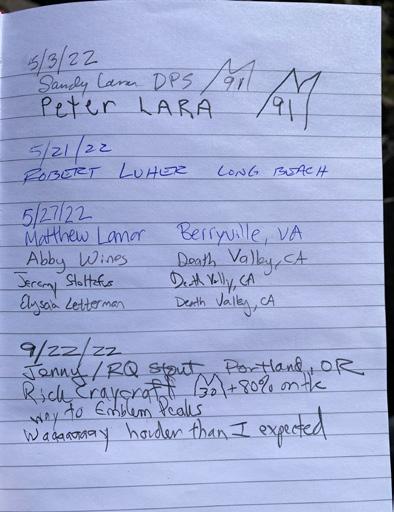 5/3/22
Sandy Lara DPS M 91
Peter LARA M 91
5/21/22
ROBERT LUHER LONG BEACH
5/27/22
Matthew Lamar Berryville, VA
Abby Wines Death Valley, CA
Jeremy Stoltzfus Death Vally, CA
Elyscia Letterman Death Valley, CA
9/22/22
Jenny / RQ Stout Portland, OR
Rick Craycraft M 30 + 80% on the
way to Emblem Peaks
Waaaaaaay harder than I expected